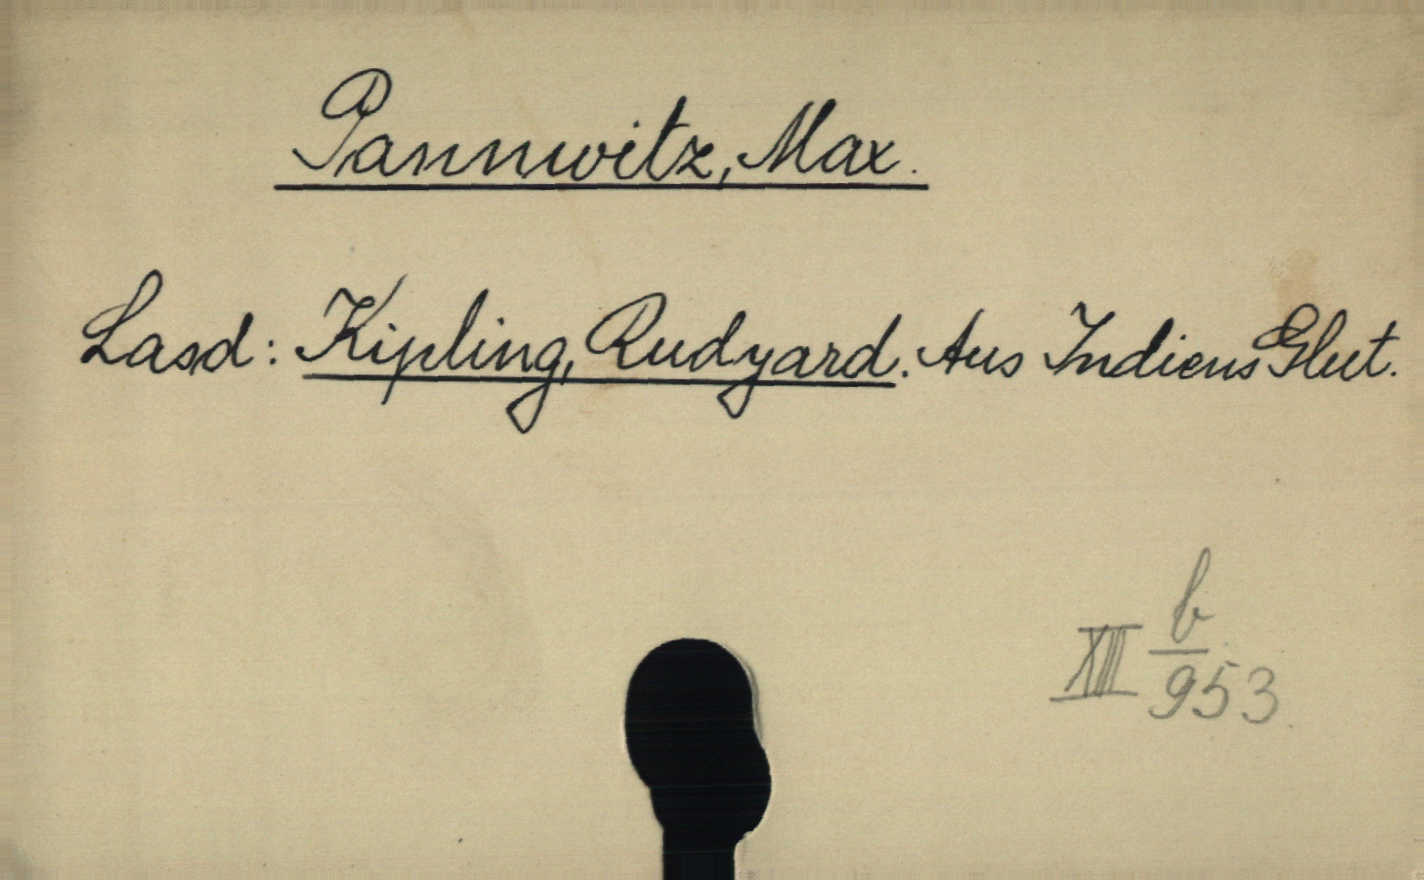 Pannwitz, Max.
Lasd: Kipling, Rudyard. Aus Indiens Glut.
XIII b/953